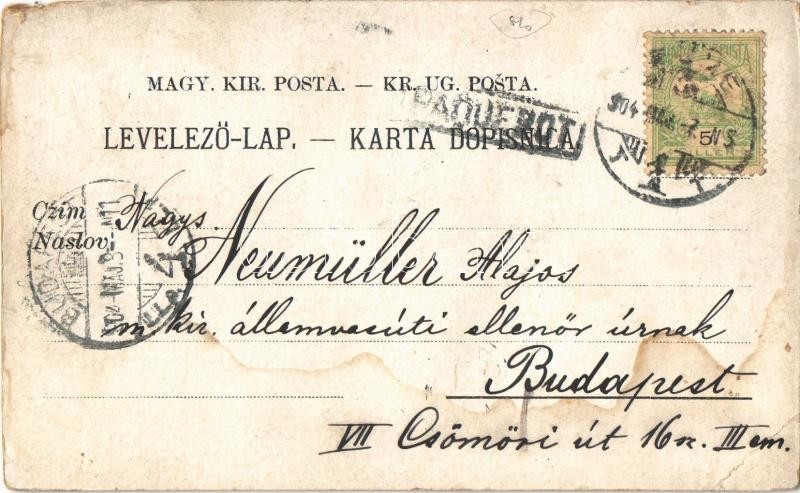 MAGY. KIR. POSTA. — KR. UG. POŠTA.
PAQUEBOT
LEVELEZÖ-LAP. — KARTA DOPISNICA.
904
5
Czim
Naslov
Nagys.
Neumüller Alajos
m. kir. államvasúti ellenőr úrnak
Budapest
VII Csömöri út 16sz. III em.
BUDAPEST
904 MÁJ. 9
4